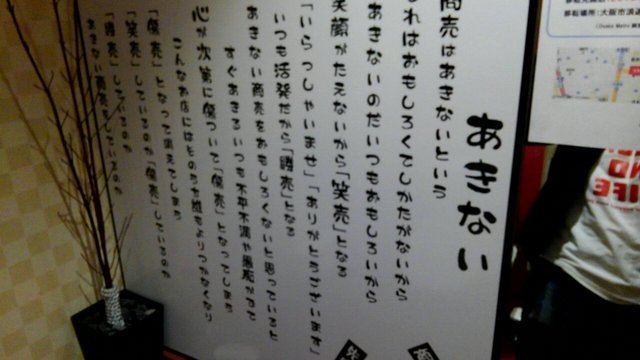 あきない
商売はあきないという
れはおもしろくてしかたがないから
あきないのだいつもおもしろいから
笑顔がたえないから「笑売」となる
「いらっしゃいませ」「ありがとうございます」
いつも活発だから「勝売」となる
あきない商売をおもしろくないと思っていると
すぐあきるいつも不平不満や愚痴がでて
心が次第に傷ついて「傷売」となってしまう
こんなお店にはそのうち誰もよりつかなくなり
「傷売」となって消えてしまう
「笑売」しているのか「傷売」しているのか
「勝売」しているのか
あきない商売をしているのか
移転場所:大阪市浪速
(Osaka Metro